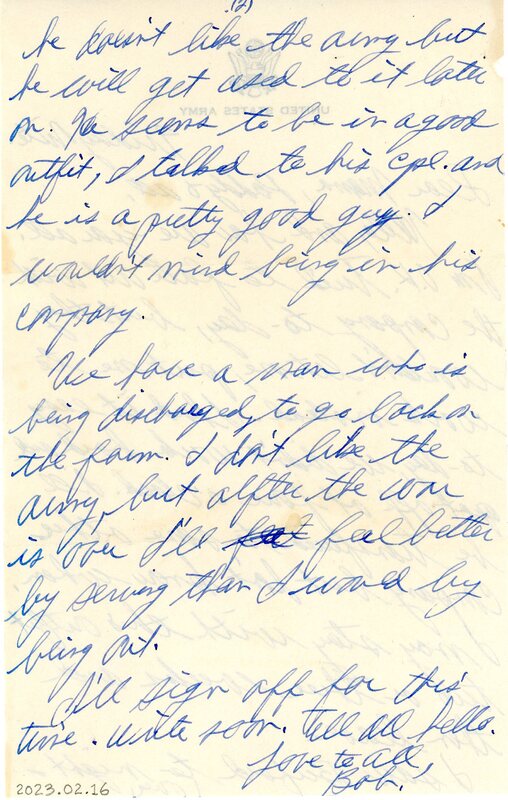 (2)
he doesn't like the army but
he will get used to it later
on. He seems to be in a good
outfit, I talked to his cpl. and
he is a pretty good guy. I
wouldn't mind being in his
company.
We have a man who is
being discharged, to go back on
the farm. I don't like the
army, but alfter the war
is over I'll feel better
by serving than I would by
being out.
I'll sign off for this
time. Write soon. Tell all hello.
Love to all,
Bob.
2023.02.16
UNITED STATES ARMY